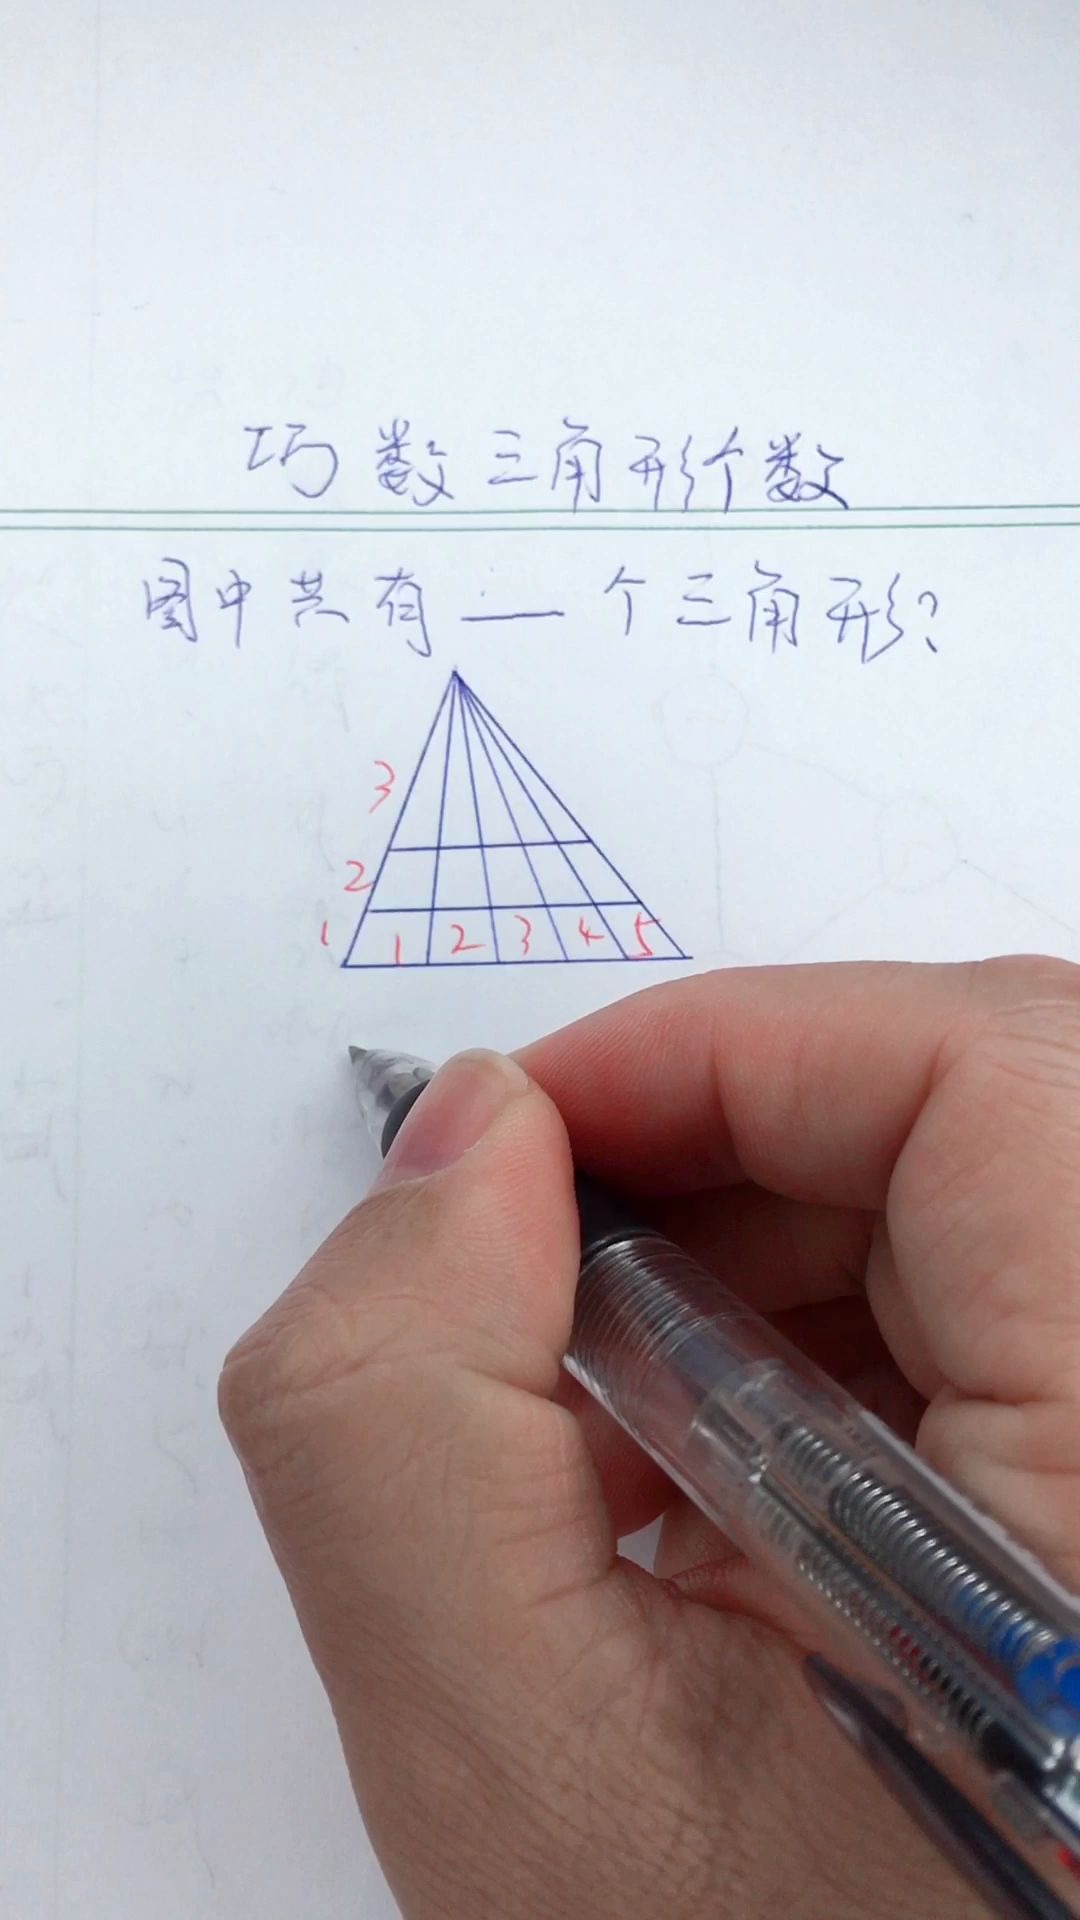 巧数三角形个数
图中共有__个三角形?
3
2
1 1 2 3 4 5